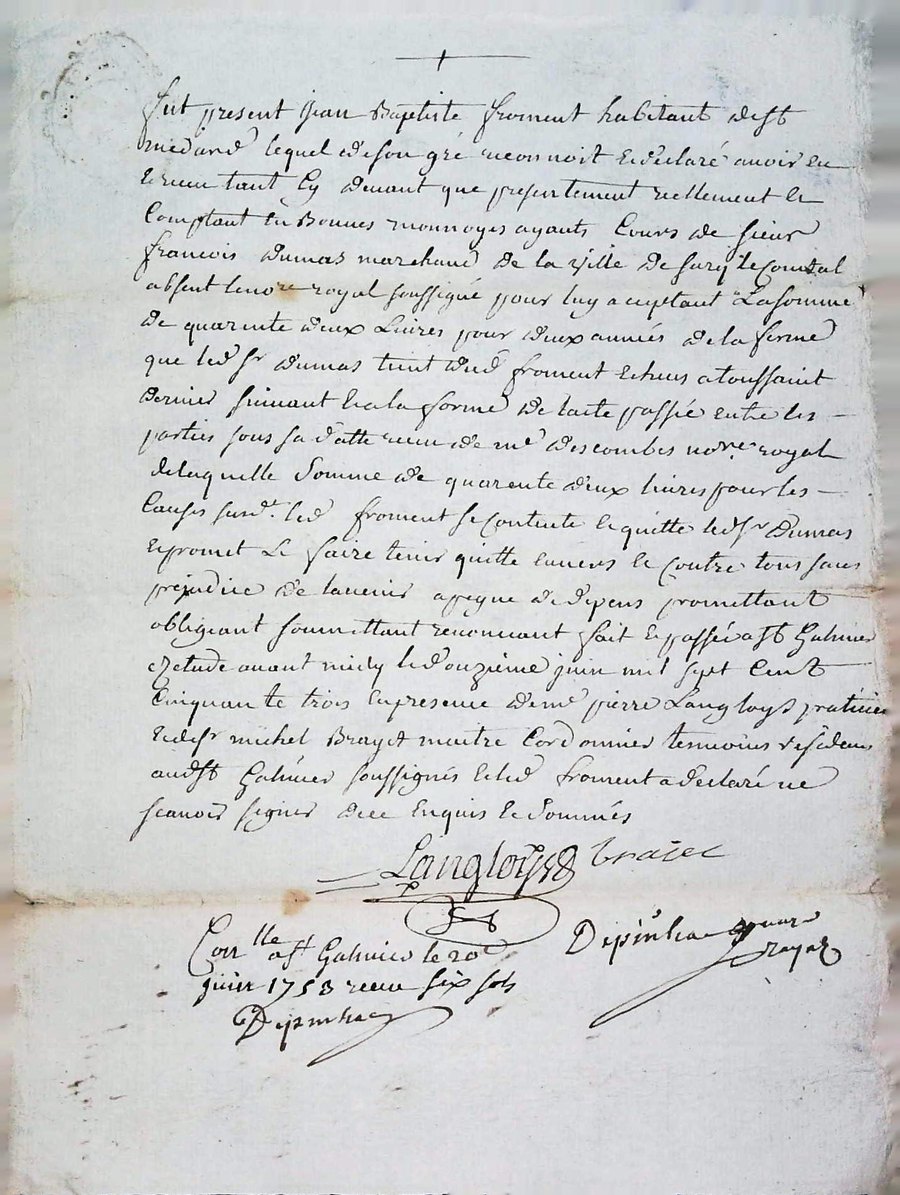 fut present Jean Baptiste froment habitant de st
médard lequel de son gré reconnoit et declaré avoir eu
et receu tant cy devant que presentement reellement et
comptant en bonnes monnoyes ayants cours de sieur
francois dumas marchand de la ville de sury le comtal
absent le nore royal soussigné pour luy acceptant la somme
de quarente deux livres pour deux années de la ferme
que led sr dumas tient dud froment echues a toussaint
dernier suivant et a la forme de lacte passée entre les
parties sous sa datte receu de me descombes nore royal
de laquelle somme de quarente deux livres pour les
causes susd. led froment se contente et quitte led sr dumas
et promet le faire tenir quitte envers et contre tous sans
préjudice de lavenir a peyne de depens promettant
obligeant soumettant renoncant fait et passé a st Galmier
etude avant midy le douzième juin mil sept cent
cinquante trois en presence de me pierre Langloys praticien
et de sr michel Brayet maitre cordonnier temoins residens
audst Galmier soussignés et led froment a declaré ne
scavoir signer de ce enquis et sommés
Langloys brajet
Conlle a st Galmier le 20e
juin 1753 receu six sols
Depinhac
Depinhac nore
royal